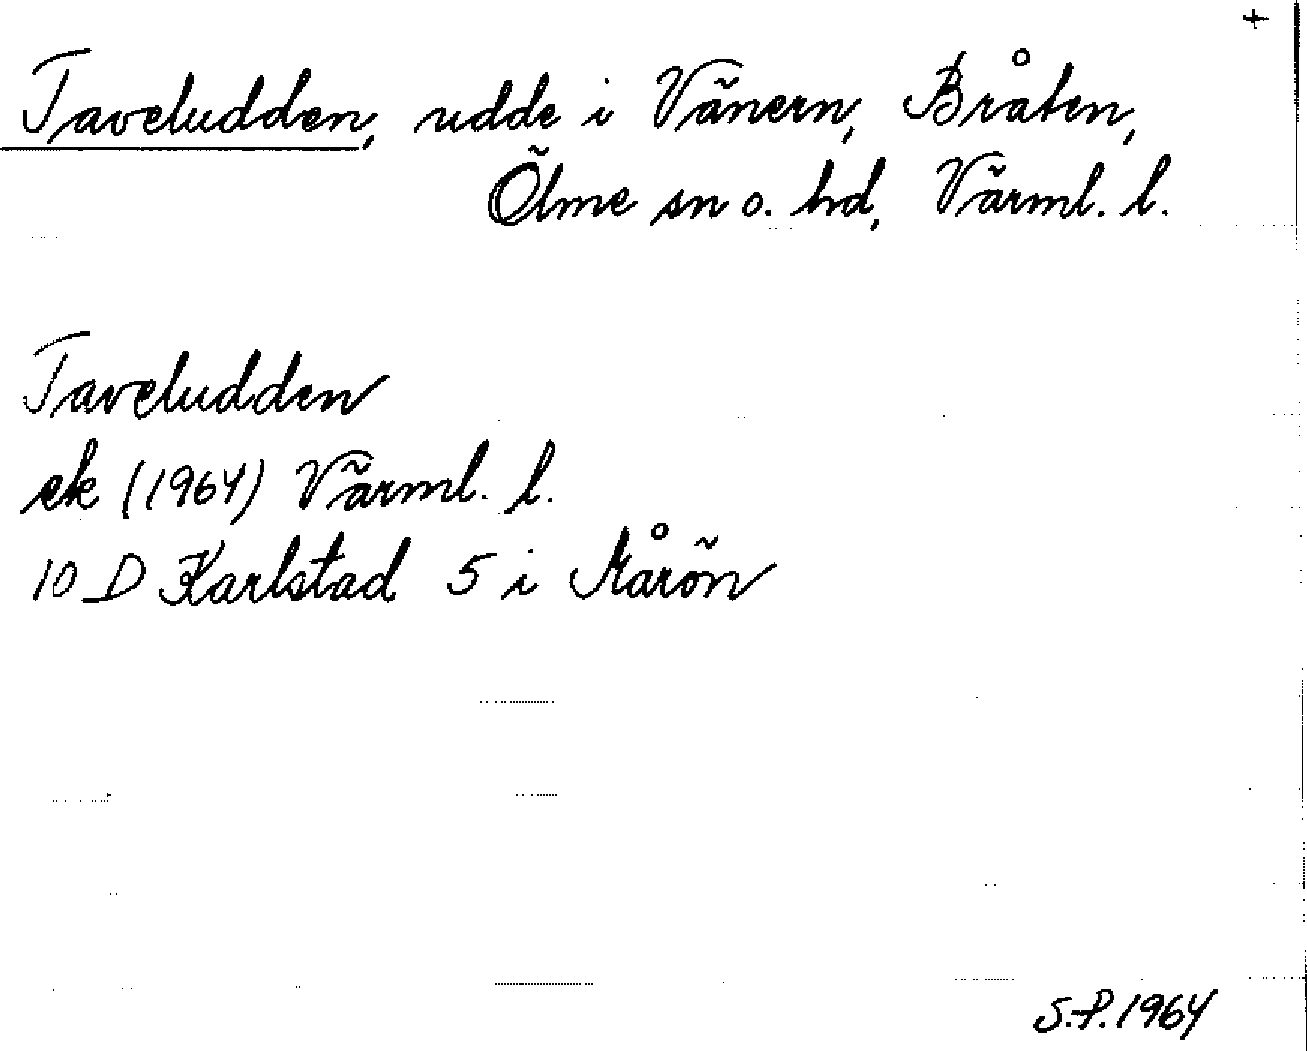 +
Taveludden, udde i Vänern, Bråten,
Ölme sn o. hd, Värml. l.
Taveludden
ek (1964) Värml. l.
10 D Karlstad 5 i Kårön
S.P. 1964